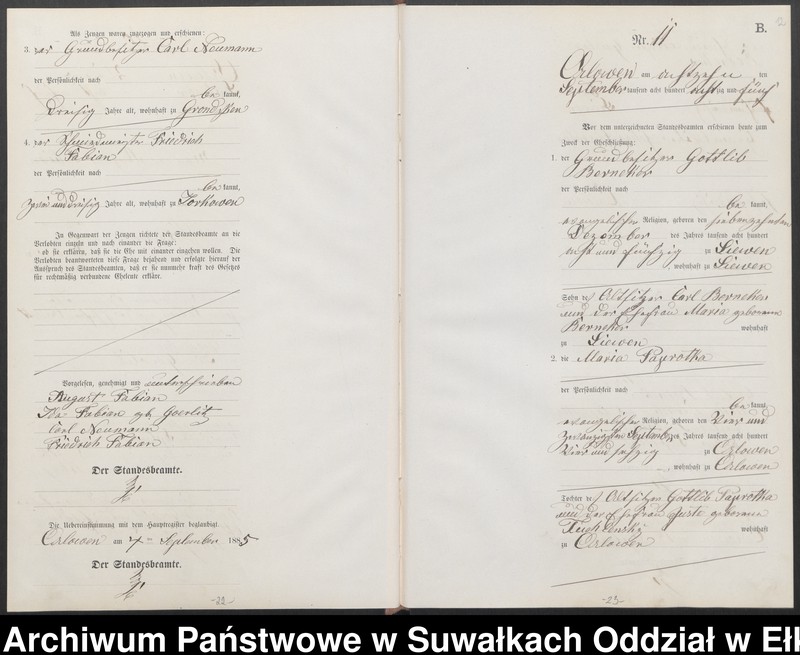 Als Zeugen waren zugezogen und erschienen:
3. der Grundbesitzer Carl Neumann
der Persönlichkeit nach
be kannt,
dreißig Jahre alt, wohnhaft zu Grondzken
4. der Schmiedemeister Friedrich
Fabian
der Persönlichkeit nach
be kannt,
zwei und dreißig Jahre alt, wohnhaft zu Jorkowen
In Gegenwart der Zeugen richtete der Standesbeamte an die
Verlobten einzeln und nach einander die Frage:
ob sie erklären, daß sie die Ehe mit einander eingehen wollen. Die
Verlobten beantworteten diese Frage bejahend und erfolgte hierauf der
Ausspruch des Standesbeamten, daß er sie nunmehr kraft des Gesetzes
für rechtmäßig verbundene Eheleute erkläre.
Vorgelesen, genehmigt und unterschrieben
August Fabian
Fabian geb Goerlitz
Carl Neumann
Friedrich Fabian
Der Standesbeamte.
Die Uebereinstimmung mit dem Hauptregister beglaubigt.
Orlowen am 7ten September 1885
Der Standesbeamte.
-22-
B.
2
Nr. 11
Orlowen am achtzehn ten
September tausend acht hundert achtzig und fünf
Vor dem unterzeichneten Standesbeamten erschienen heute zum
Zweck der Eheschließung:
1. der Grundbesitzer Gottlib
Berneker
der Persönlichkeit nach
be kannt,
evangelischer Religion, geboren den siebenzehnten
Dezember des Jahres tausend acht hundert
acht und fünfzig zu Siewen
, wohnhaft zu Siewen
Sohn des Altsitzer Carl Berneker
und der Ehefrau Maria geborenen
Berneker wohnhaft
zu Siewen
2. die Maria Parotka
der Persönlichkeit nach
be kannt,
evangelischer Religion, geboren den Vier und
zwanzigsten September des Jahres tausend acht hundert
Vier und sechzig zu Orlowen
, wohnhaft zu Orlowen
Tochter des Altsitzer Gottlib Parotka
und der Ehefrau Juste geborenen
wohnhaft
zu Orlowen
-23-
Archiwum Państwowe w Suwałkach Oddział w Ełk